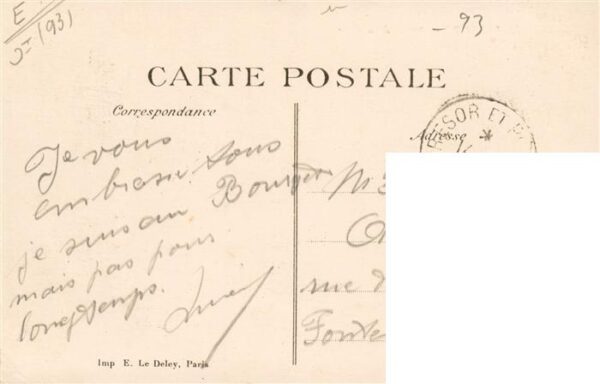 E
- 93
CARTE POSTALE
Correspondance
Adresse
TRESOR ET
*
Je vous
embrasse tous
je suis au Bourget
mais pas pour
longtemps.
M
rue d
Fonte
Imp E. Le Deley, Paris